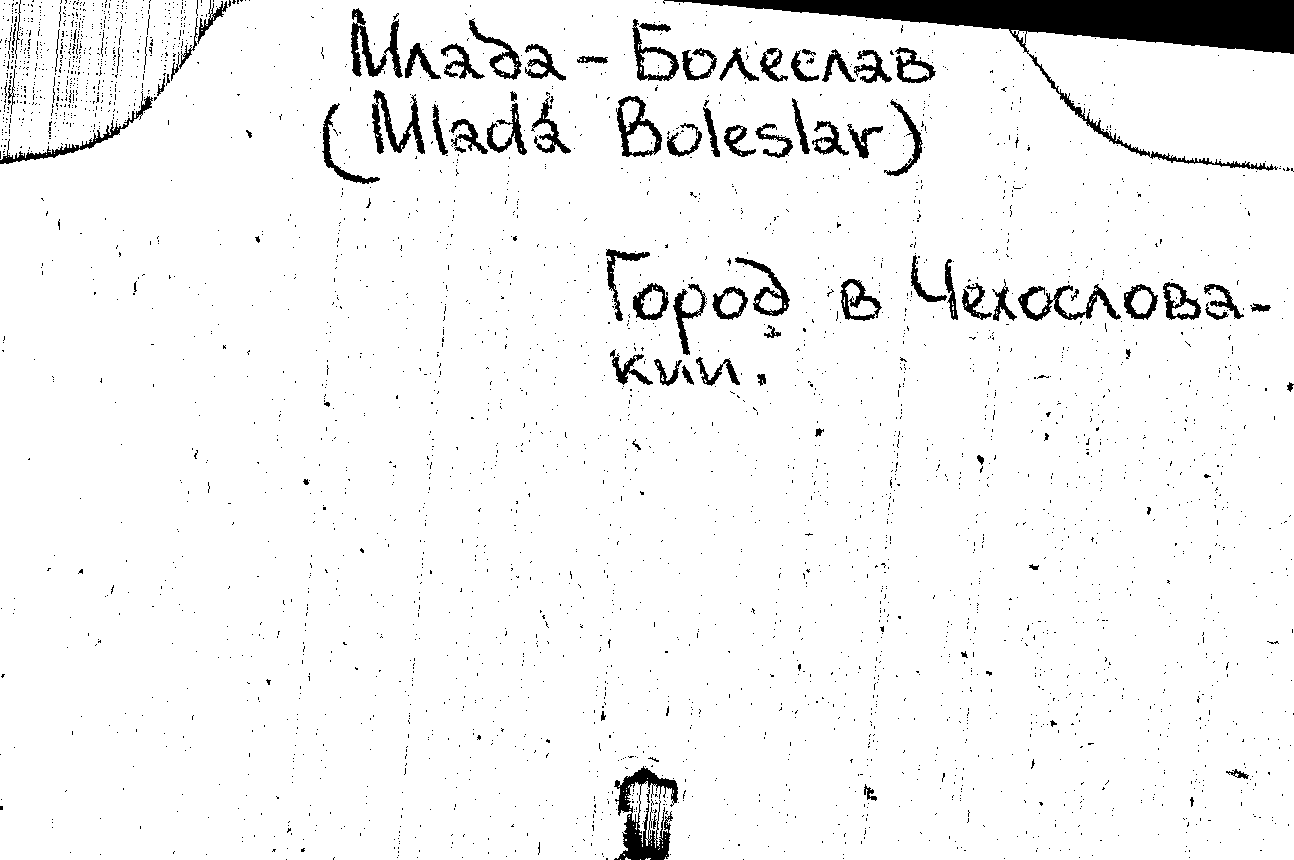 Млада-Болеслав
(Mladá Boleslav)
Город в Чехослова-
кии.